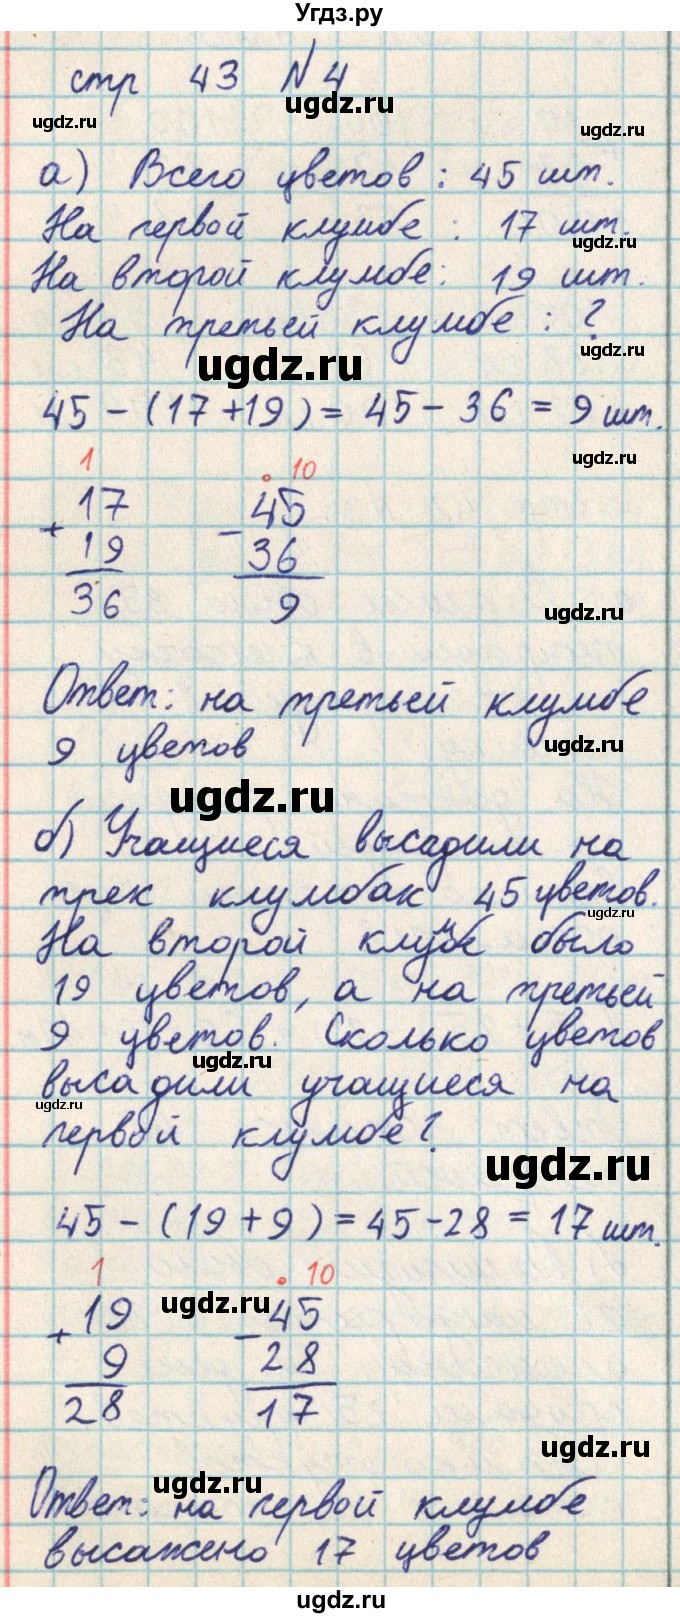 Угдз.ру
стр 43 №4
ugdz.ru
ugdz.ru
ugdz.ru
а) Всего цветов: 45 шт.
На первой клумбе: 17 шт.
ugdz.ru
На второй клумбе: 19 шт.
На третьей клумбе: ?
ugdz.ru
ugdz.ru
45 - (17+19) = 45 - 36 = 9 шт.
ugdz.ru
1 . 10
17 45
+ -
19 36
36 9
ugdz.ru
Ответ: на третьей клумбе
9 цветов
ugdz.ru
ugdz.ru
б) Учащиеся высадили на
трех клумбах 45 цветов.
ugdz.ru
На второй клумбе было
19 цветов, а на третьей
9 цветов. Сколько цветов
ugdz.ru
высадили учащиеся на
ugdz.ru
первой клумбе?
ugdz.ru
45 - (19+9) = 45 - 28 = 17 шт.
1 . 10
19 45
ugdz.ru
+ -
9 28
28 17
ugdz.ru
ugdz.ru
Ответ: на первой клумбе
высажено 17 цветов
ugdz.ru